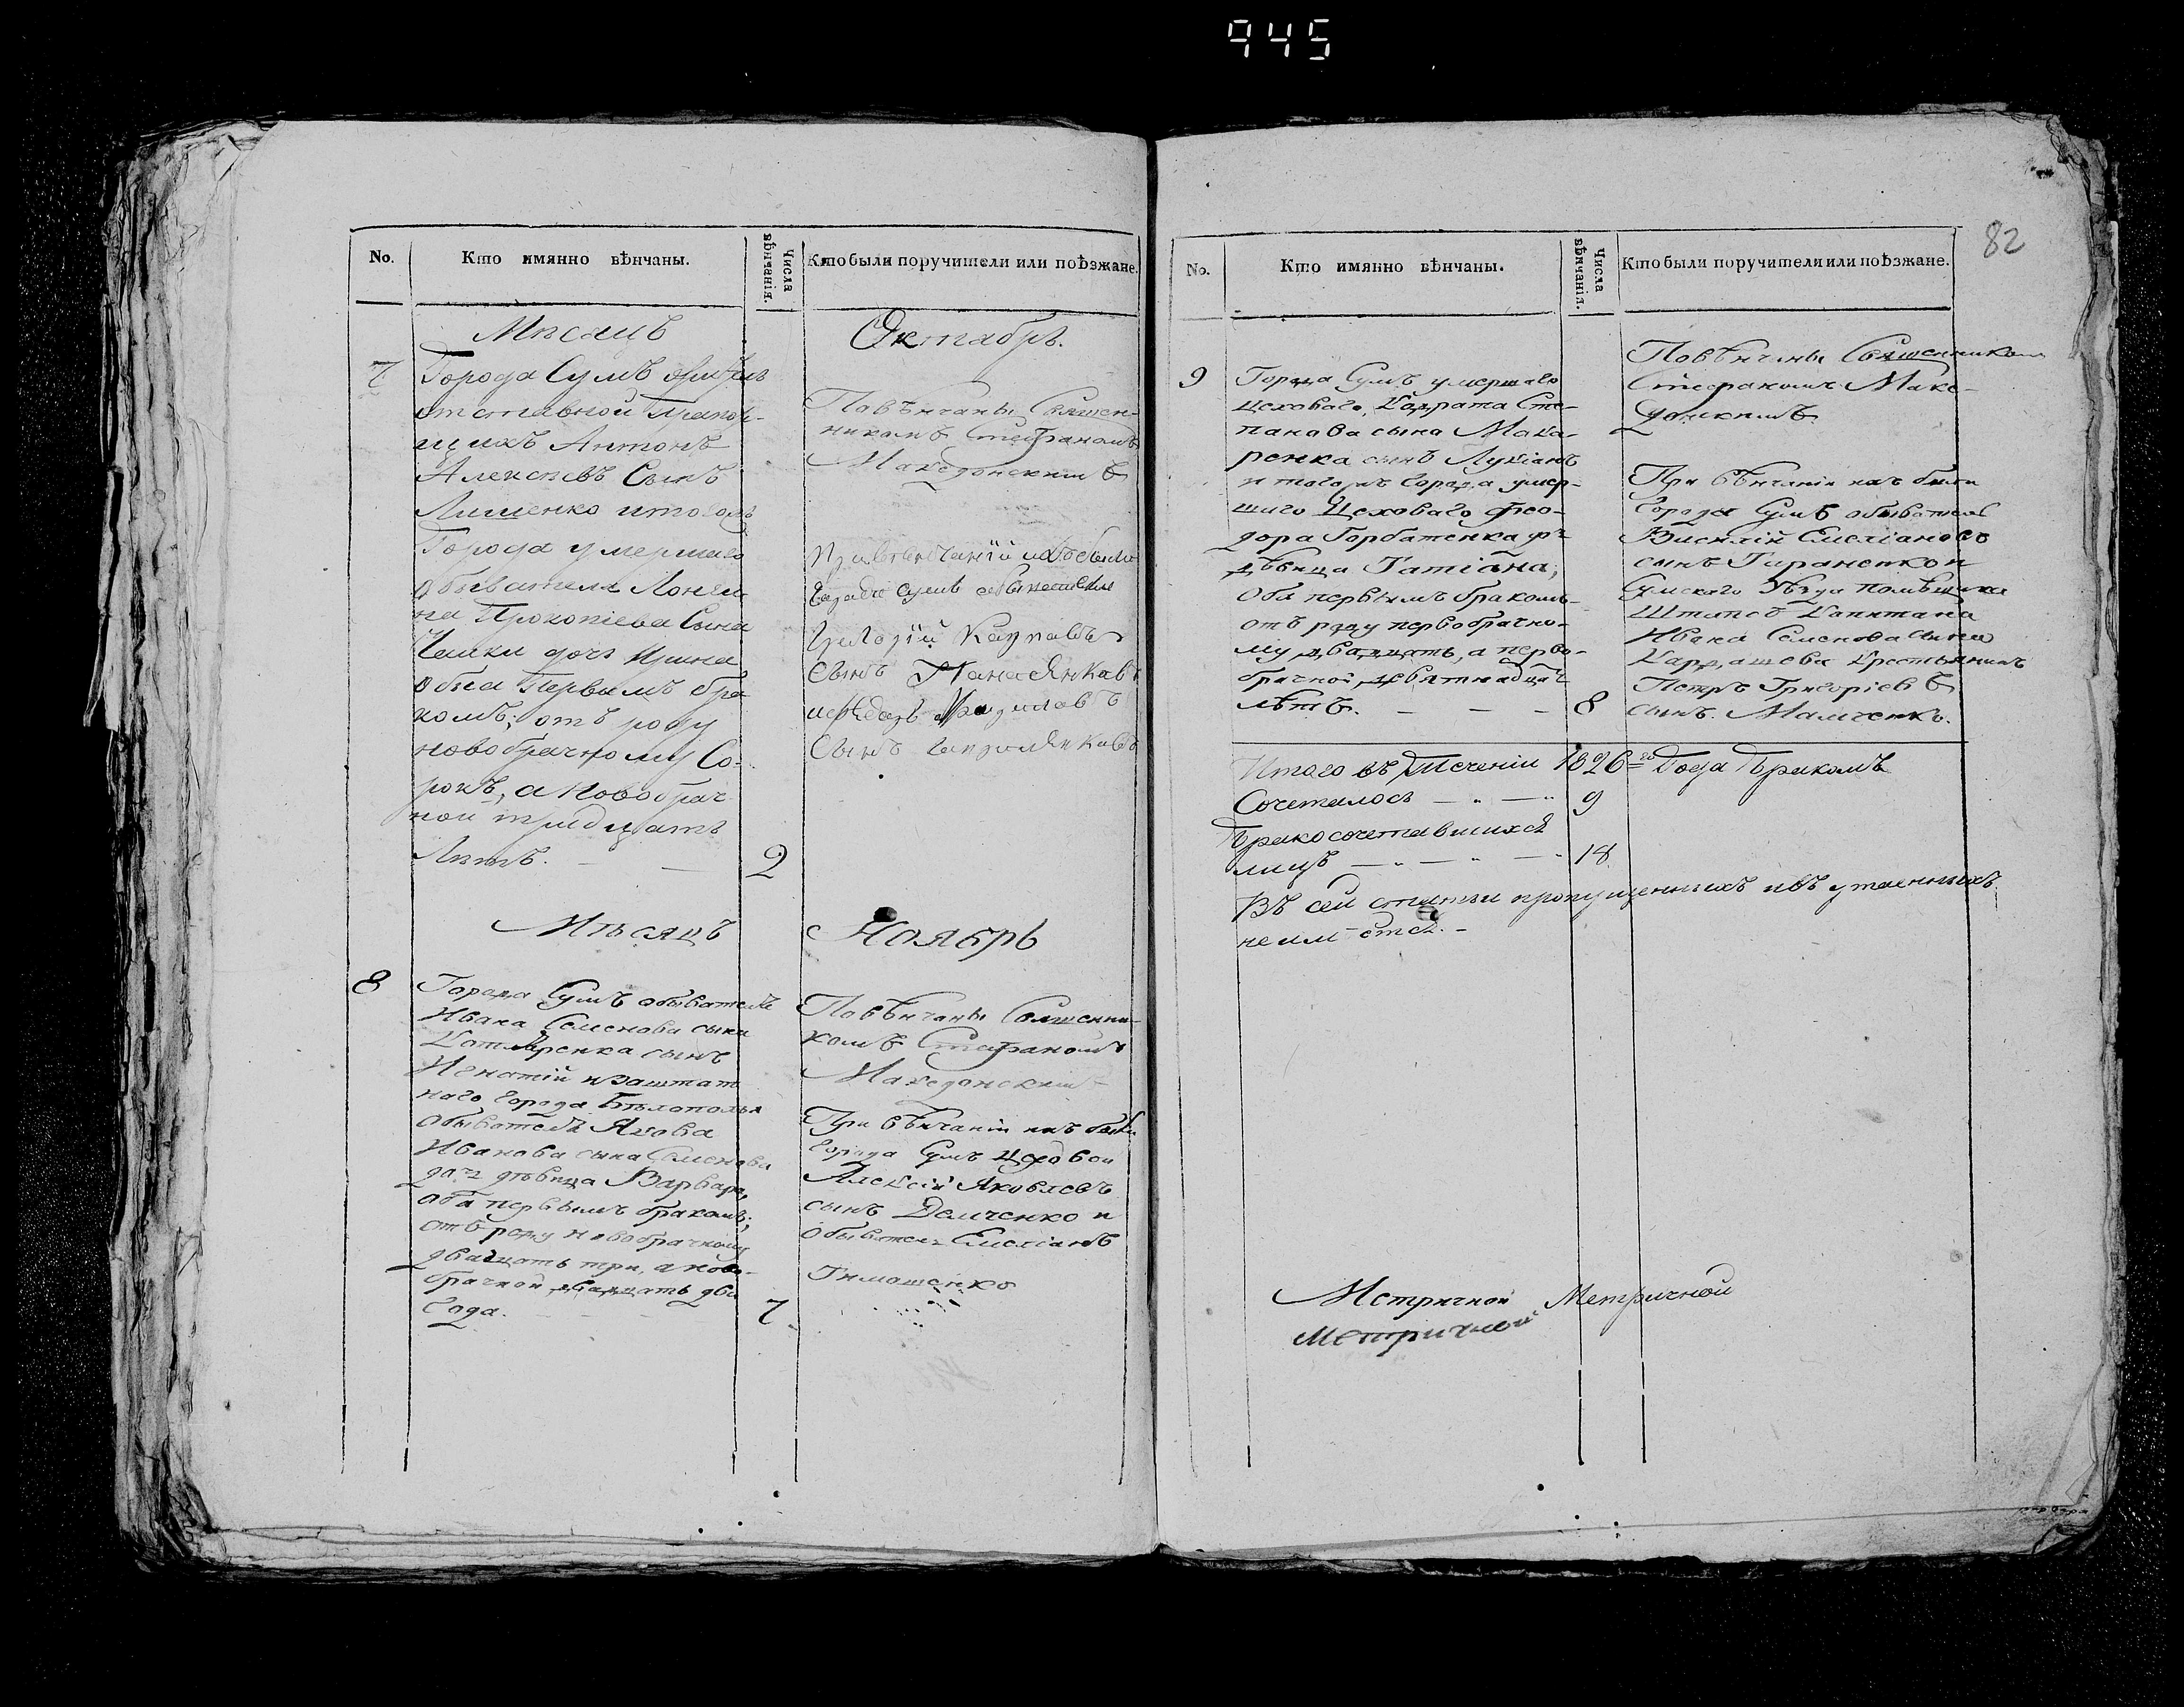 945
82
No.
Кто имянно вѣнчаны.
Числа вѣнчанія.
Кто были поручители или поѣзжане.
Мѣсяцъ
Октябрь.
7
Города Сумъ житель
отставной Прапор-
щикъ Антонъ
Алексѣевъ Сынъ
Лишенко итогожъ
Города умершаго
обывателя Лонги-
на Прокопіева Сына
дочь Ирина
оба Первымъ бра-
комъ; отъ роду
новобрачному Со-
рокъ, а новобрач
ной тридцать
Лѣтъ.
2
Повѣнчаны Священ-
никомъ Стефаномъ
Македонскимъ
Григорій Карповъ
Сынъ
Сынъ
Мѣсяцъ
Ноябрь
8
Города Сумъ обывателя
Ивана Семенова сына
Котляренка сынъ
Игнатій и заштат
наго города Бѣлополья
обывателя Якова
Иванова сына Семенова
дочь дѣвица Варвара,
оба первымъ бракомъ;
отъ роду новобрачному
двадцать три, а ново-
брачной двадцать два
Года.
7
Повѣнчаны Священни-
комъ Стефаномъ
Македонскимъ
При вѣнчаніи ихъ были
города Сумъ цеховой
Алексій Яковлевъ
сынъ Демченко и
обыватель Емеліанъ
Тимошенко
No.
Кто имянно вѣнчаны.
Числа вѣнчанія.
Кто были поручители или поѣзжане.
9
Города Сумъ умершаго
цеховаго, Кодрата Сте-
панова сына Мака-
ренка сынъ Лукіанъ
и тогожъ города умер-
шаго Цеховаго Фео-
дора Горбатенка
дѣвица Татіана,
оба первымъ бракомъ
отъ роду первобрачно-
му двадцать, а перво-
брачной, девятнадцать
лѣтъ.
8
Повѣнчаны Священникомъ
Стефаномъ Маке-
донскимъ
При вѣнчаніи ихъ были
города Сумъ обыватель
Василій Емеліановъ
сынъ Тараненко и
Сумскаго Уѣзда помѣщика
Штапсъ Капитана
Ивана Семенова сына
Кардашева крестьянинъ
Петръ Григоріевъ
сынъ Мамченко.
Итого въ теченіи 1826=го Года Бракомъ
Сочеталось 9
Бракосочетавшихся
лицъ 18
Въ сей статьи пропущенныхъ ивъ утаенныхъ
неимѣется.
Метричной Метричной
Метричной